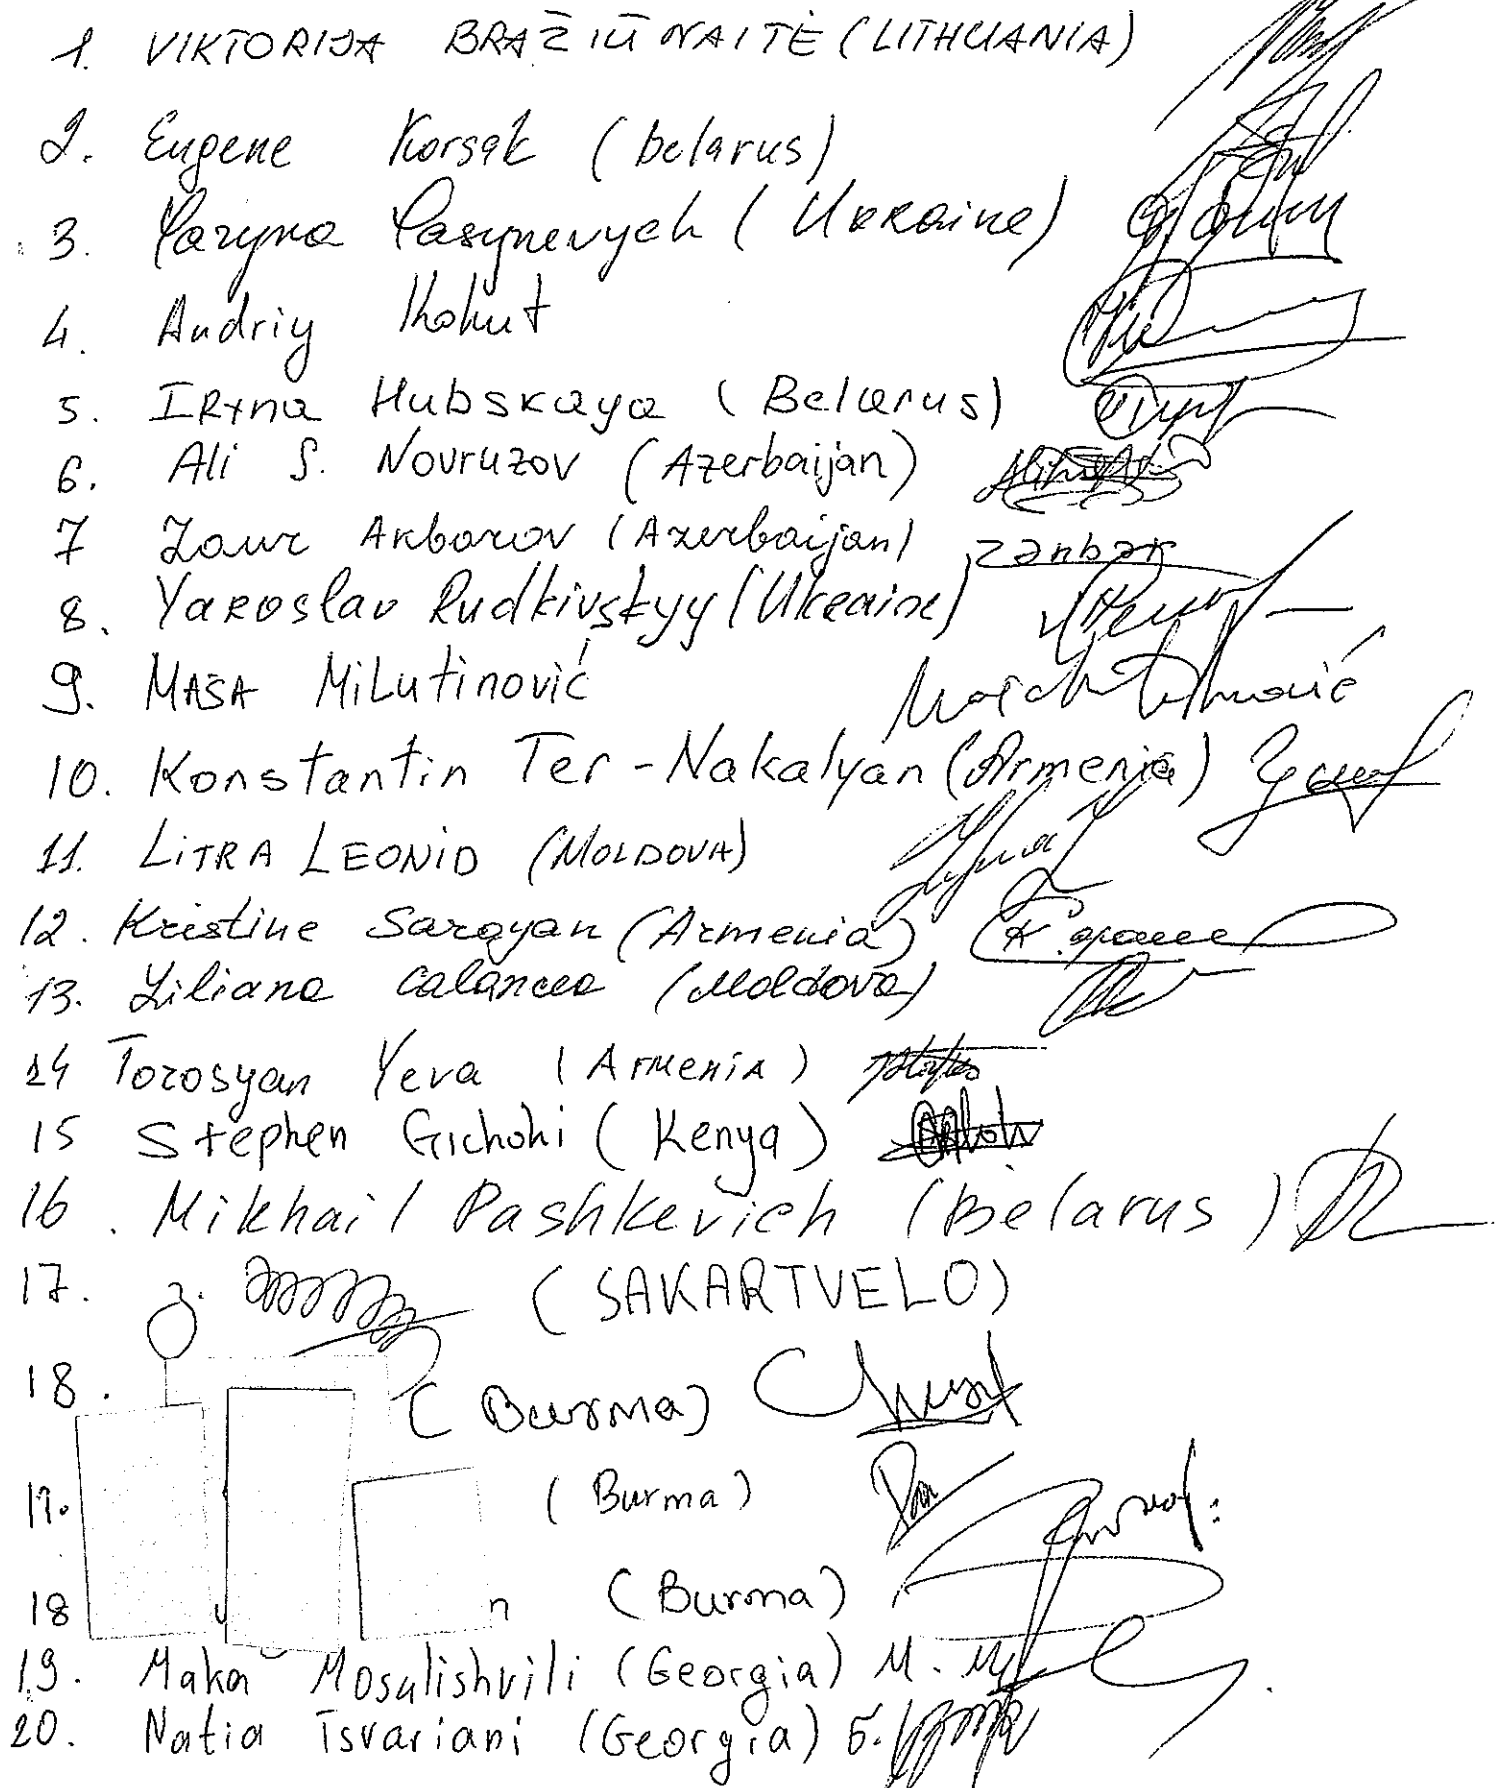 1. VIKTORIJA BRAŽIŪNAITĖ (LITHUANIA)
2. Eugene Korsak (belarus)
3. Yaryna Yasynevych (Ukraine)
4. Andriy Kohut
5. Iryna Hubskaya (Belarus)
6. Ali S. Novruzov (Azerbaijan)
7 Zaur Akbarov (Azerbaijan) zənbək
8. Yaroslav Rudkivskyy (Ukraine)
9. MAŠA MiLutinović
10. Konstantin Ter-Nakalyan (Armenia)
11. LiTRA LEONiD (MOLDOVA)
12. Kristine Sargyan (Armenia)
13. Liliana Calancea (Moldova)
14 Torosyan Yeva (Armenia)
15 Stephen Gichohi (Kenya)
16. Mikhail Pashkevich (Belarus)
17. (SAKARTVELO)
18. (Burma)
19. (Burma)
18 (Burma)
19. Maka Mosulishvili (Georgia) M.
20. Natia Tsvariani (Georgia)